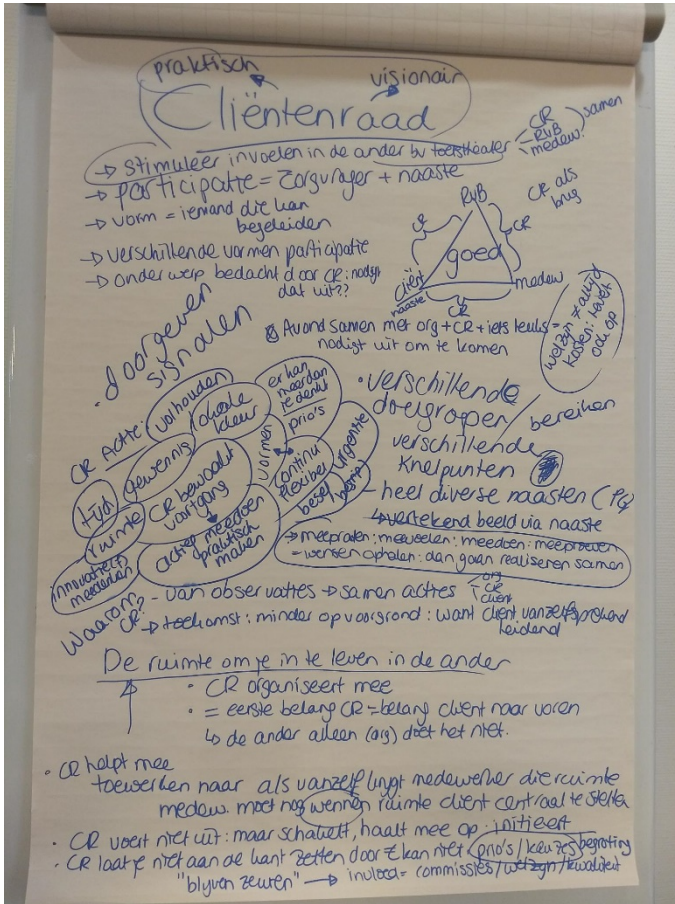 praktisch
visionair
Cliëntenraad
→ stimuleer invoelen in de ander bv toerstheater
CR
RvB
medew.
samen
→ participatie = zorgvrager + naaste
→ vorm = iemand die kan
begeleiden
→ verschillende vormen participatie
→ onderwerp bedacht door CR: nodigt
dat uit??
RvB
CR als
brug
CR
CR
goed
cliënt
naaste
medew
CR
Avond samen met org + CR + iets leuks =
nodigt uit om te komen
welzijn ≠ altijd
kosten: levert
ook op
• doorgeven
signalen
CR Actie:
volhouden
lokale
kleur
er kan
meer dan
je denkt
prio's
gewenning
tijd
ruimte
innovatief
meedenken
CR bewaakt
voortgang
vormen
continu
flexibel
urgentie
besef
begrip
actief meedoen
praktisch
maken
• verschillende
doelgroepen
bereiken
verschillende
knelpunten
- heel diverse naasten (PG)
↳ vertekend beeld via naaste
→ meepraten: meevoelen: meedoen: meeproeven
= wensen ophalen: dan gaan realiseren samen
Waarom
CR?
- van observaties → samen acties
org
CR
client
→ toekomst: minder op voorgrond: want client vanzelfsprekend
leidend
De ruimte om je in te leven in de ander
• CR organiseert mee
• = eerste belang CR = belang cliënt naar voren
↳ de ander alleen (org) doet het niet.
• CR helpt mee
toewerken naar als vanzelf krijgt medewerker die ruimte
medew. moet nog wennen ruimte client centraal te stellen
• CR voert niet uit: maar schakelt, haalt mee op: initieert
• CR laat je niet aan de kant zetten door 't kan niet prio's / keuzes begroting
"blijven zeuren" → invloed = commissies / welzijn / kwaliteit